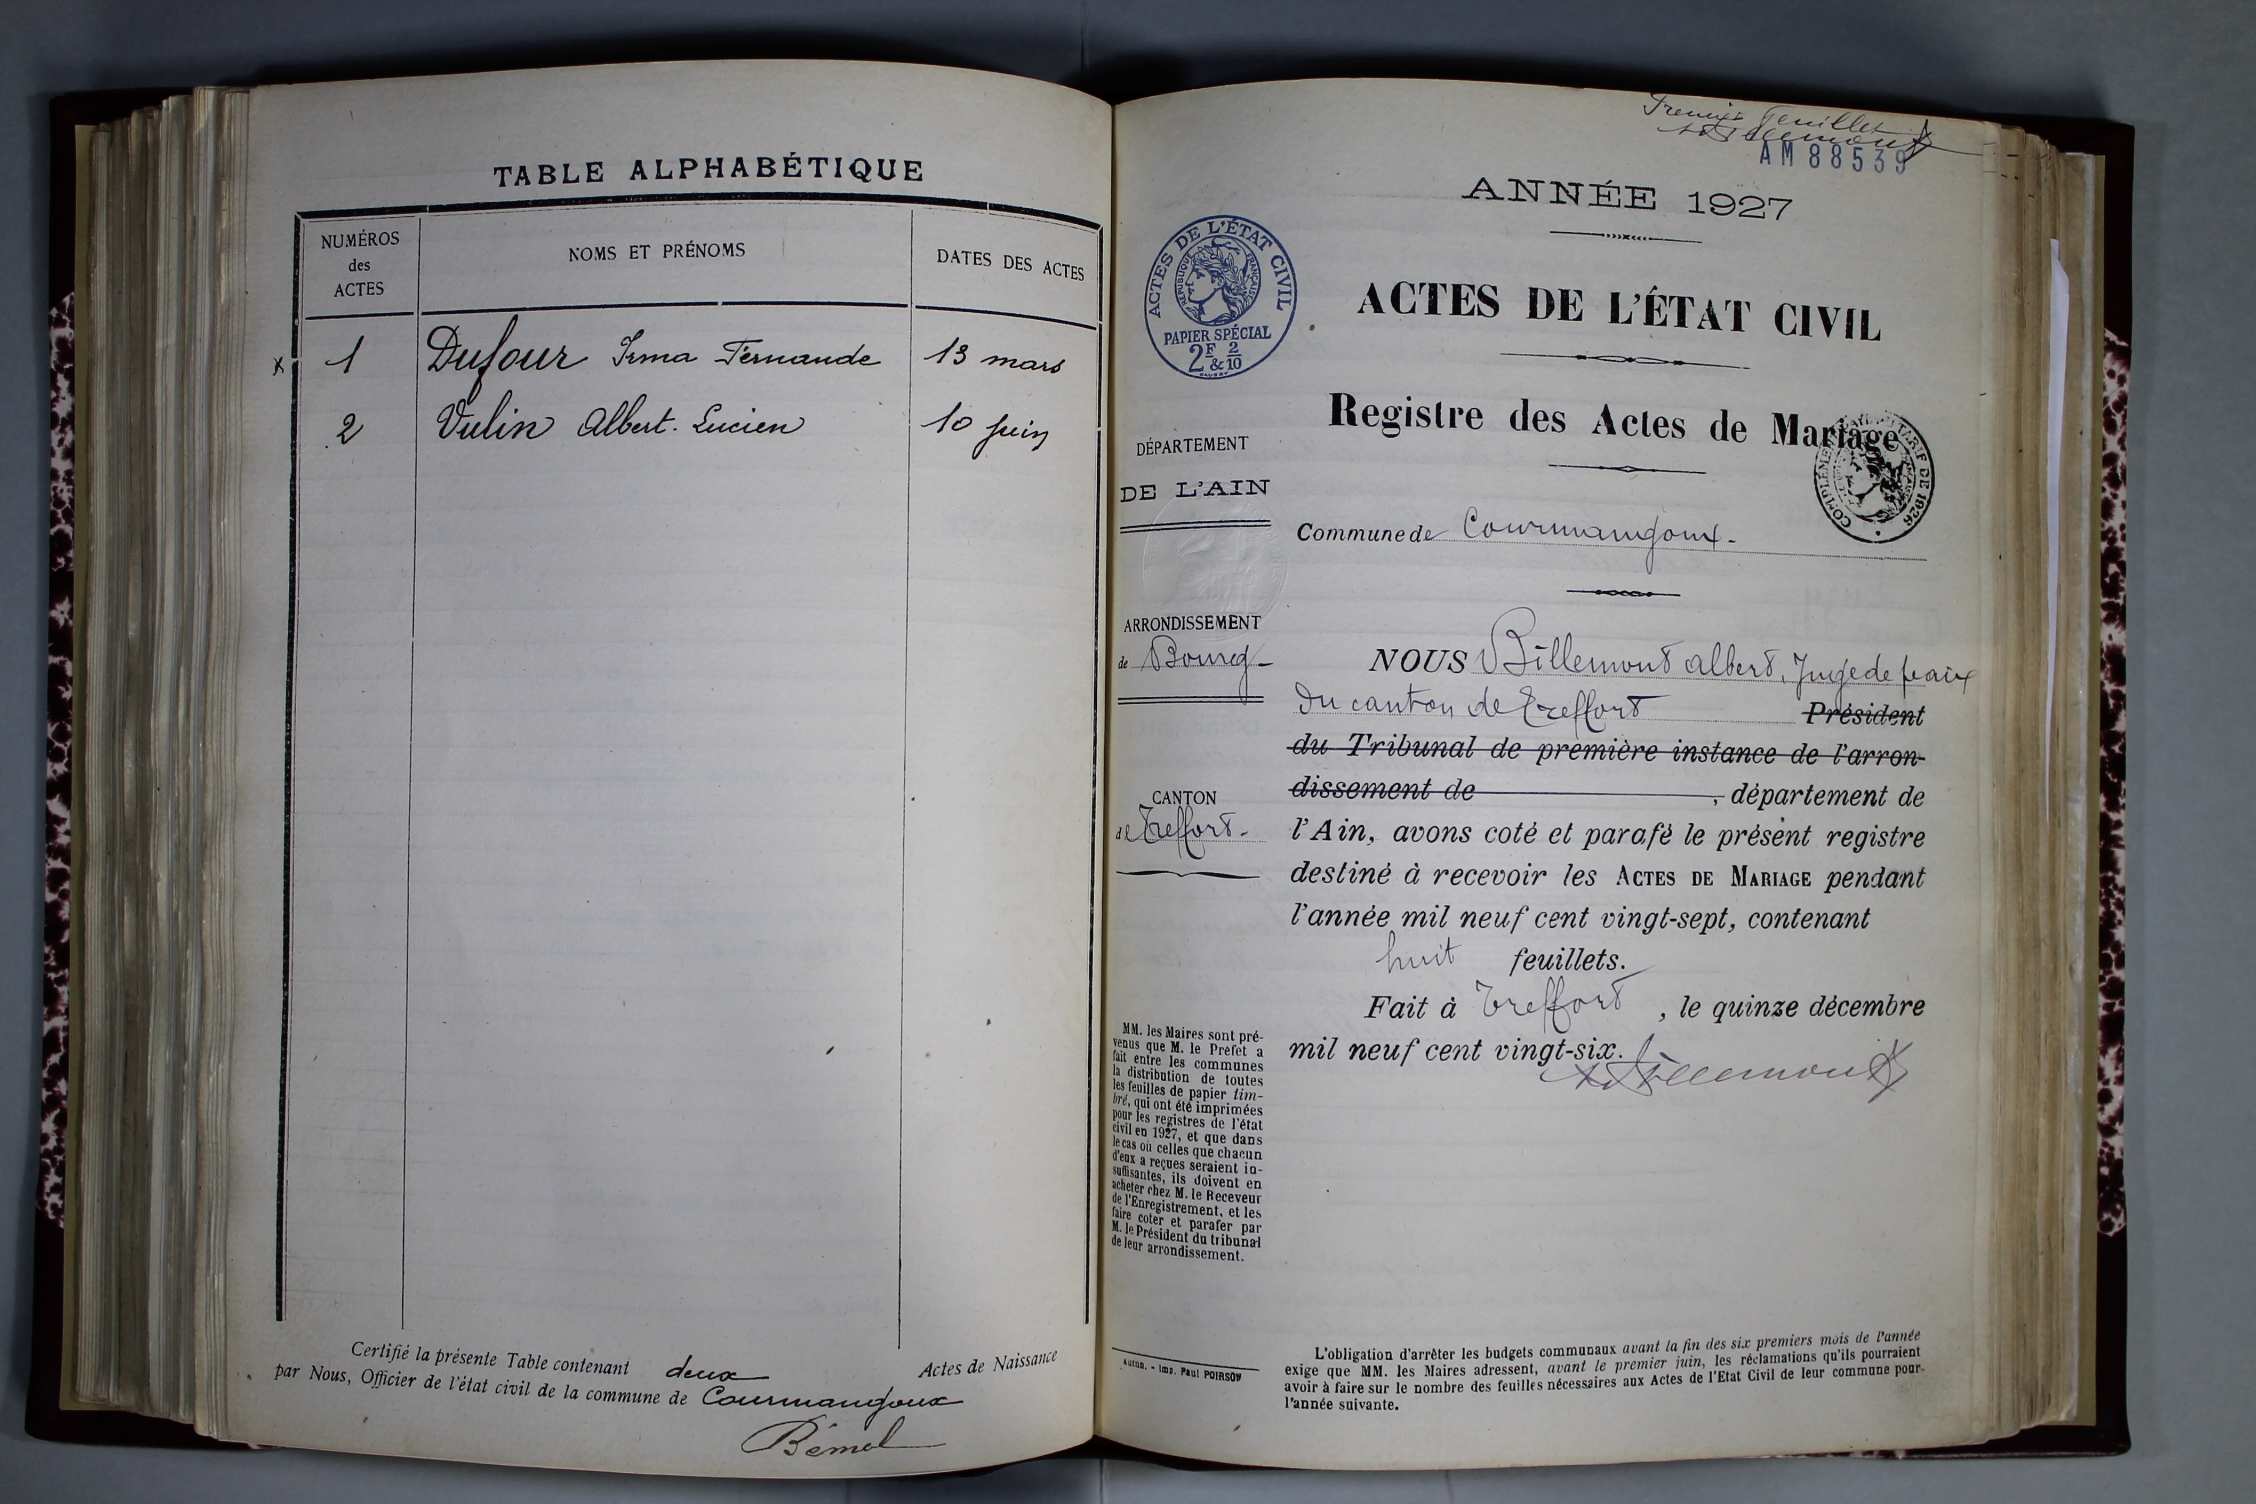 TABLE ALPHABÉTIQUE
NUMÉROS
des
ACTES
NOMS ET PRÉNOMS
DATES DES ACTES
x 1 Dufour Irma Fernande 13 mars
2 Vulin Albert. Lucien 10 juin
Certifié la présente Table contenant deux Actes de Naissance
par Nous, Officier de l'état civil de la commune de Courmangoux
Premier feuillet
AM 88539
ANNÉE 1927
ACTES DE L'ÉTAT CIVIL
RÉPUBLIQUE FRANÇAISE
PAPIER SPÉCIAL
2F & 2/10
ACTES DE L'ÉTAT CIVIL
Registre des Actes de Mariage
TARIF DE 1926
DÉPARTEMENT
DE L'AIN
Commune de Courmangoux.
ARRONDISSEMENT
de Bourg
CANTON
de Treffort.
NOUS Billemont Albert, Juge de paix
du canton de Treffort Président
du Tribunal de première instance de l'arron-
dissement de , département de
l'Ain, avons coté et parafé le présent registre
destiné à recevoir les ACTES DE MARIAGE pendant
l'année mil neuf cent vingt-sept, contenant
huit feuillets.
Fait à Treffort, le quinze décembre
mil neuf cent vingt-six.
Billemont
MM. les Maires sont pré-
venus que M. le Préfet a
fait entre les communes
la distribution de toutes
les feuilles de papier tim-
bré, qui ont été imprimées
pour les registres de l'état
civil en 1927, et que dans
le cas où celles que chacun
d'eux a reçues seraient in-
suffisantes, ils doivent en
acheter chez M. le Receveur
de l'Enregistrement, et les
faire coter et parafer par
M. le Président du tribunal
de leur arrondissement.
Autun. - Imp. Paul POIRSON
L'obligation d'arrêter les budgets communaux avant la fin des six premiers mois de l'année
exige que MM. les Maires adressent, avant le premier juin, les réclamations qu'ils pourraient
avoir à faire sur le nombre des feuilles nécessaires aux Actes de l'Etat Civil de leur commune pour
l'année suivante.